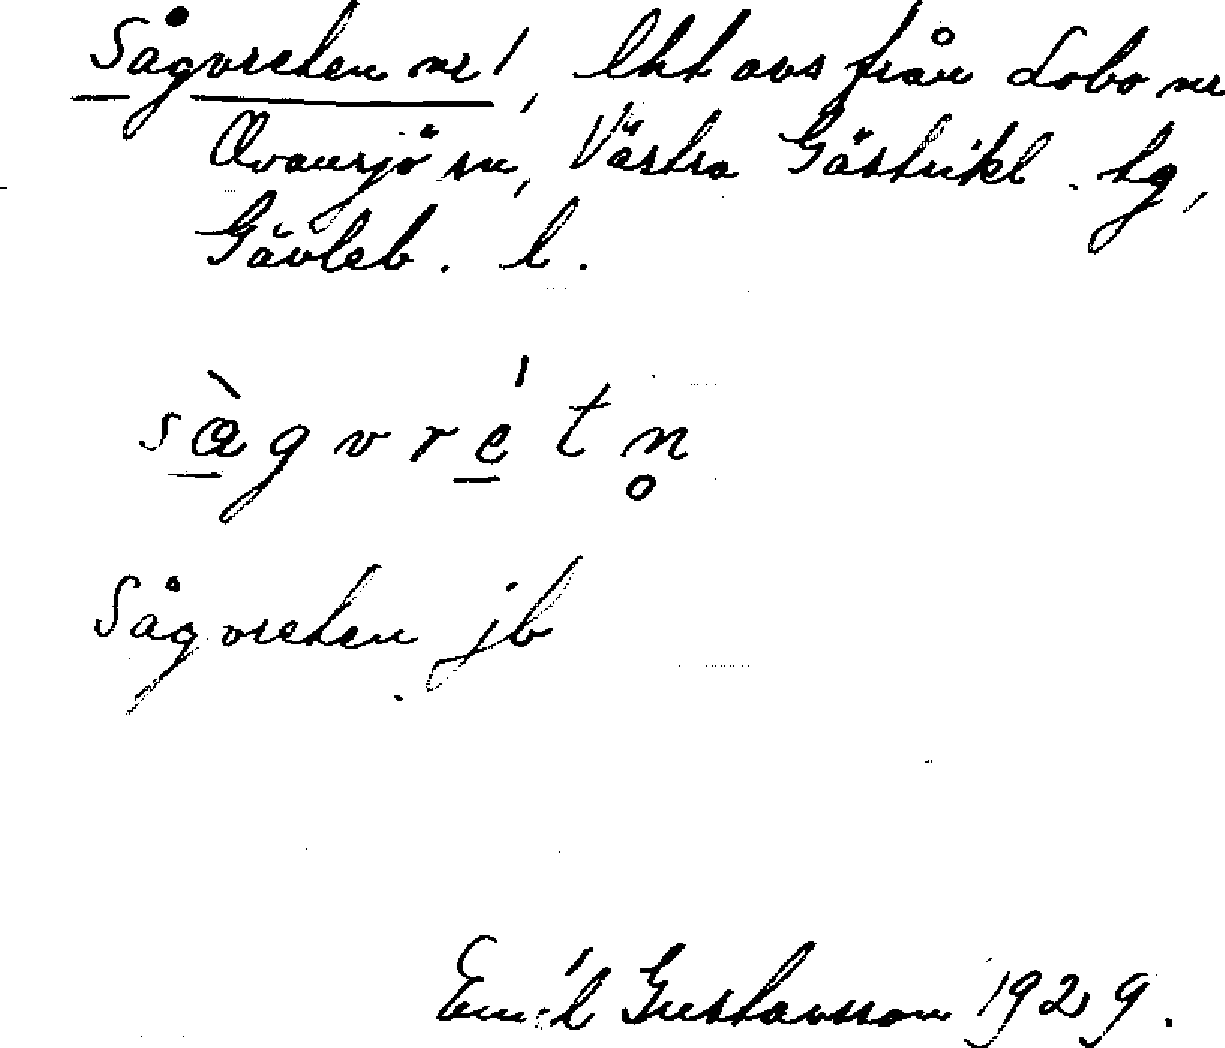 Sågvreten nr 1, lht avs från Lobo nr
Ovansjö sn, Västra Gästrikl. tg,
Gävleb. l.
sàgvrétn̥
Sågvreten jb
Emil Gustavsson 1929.